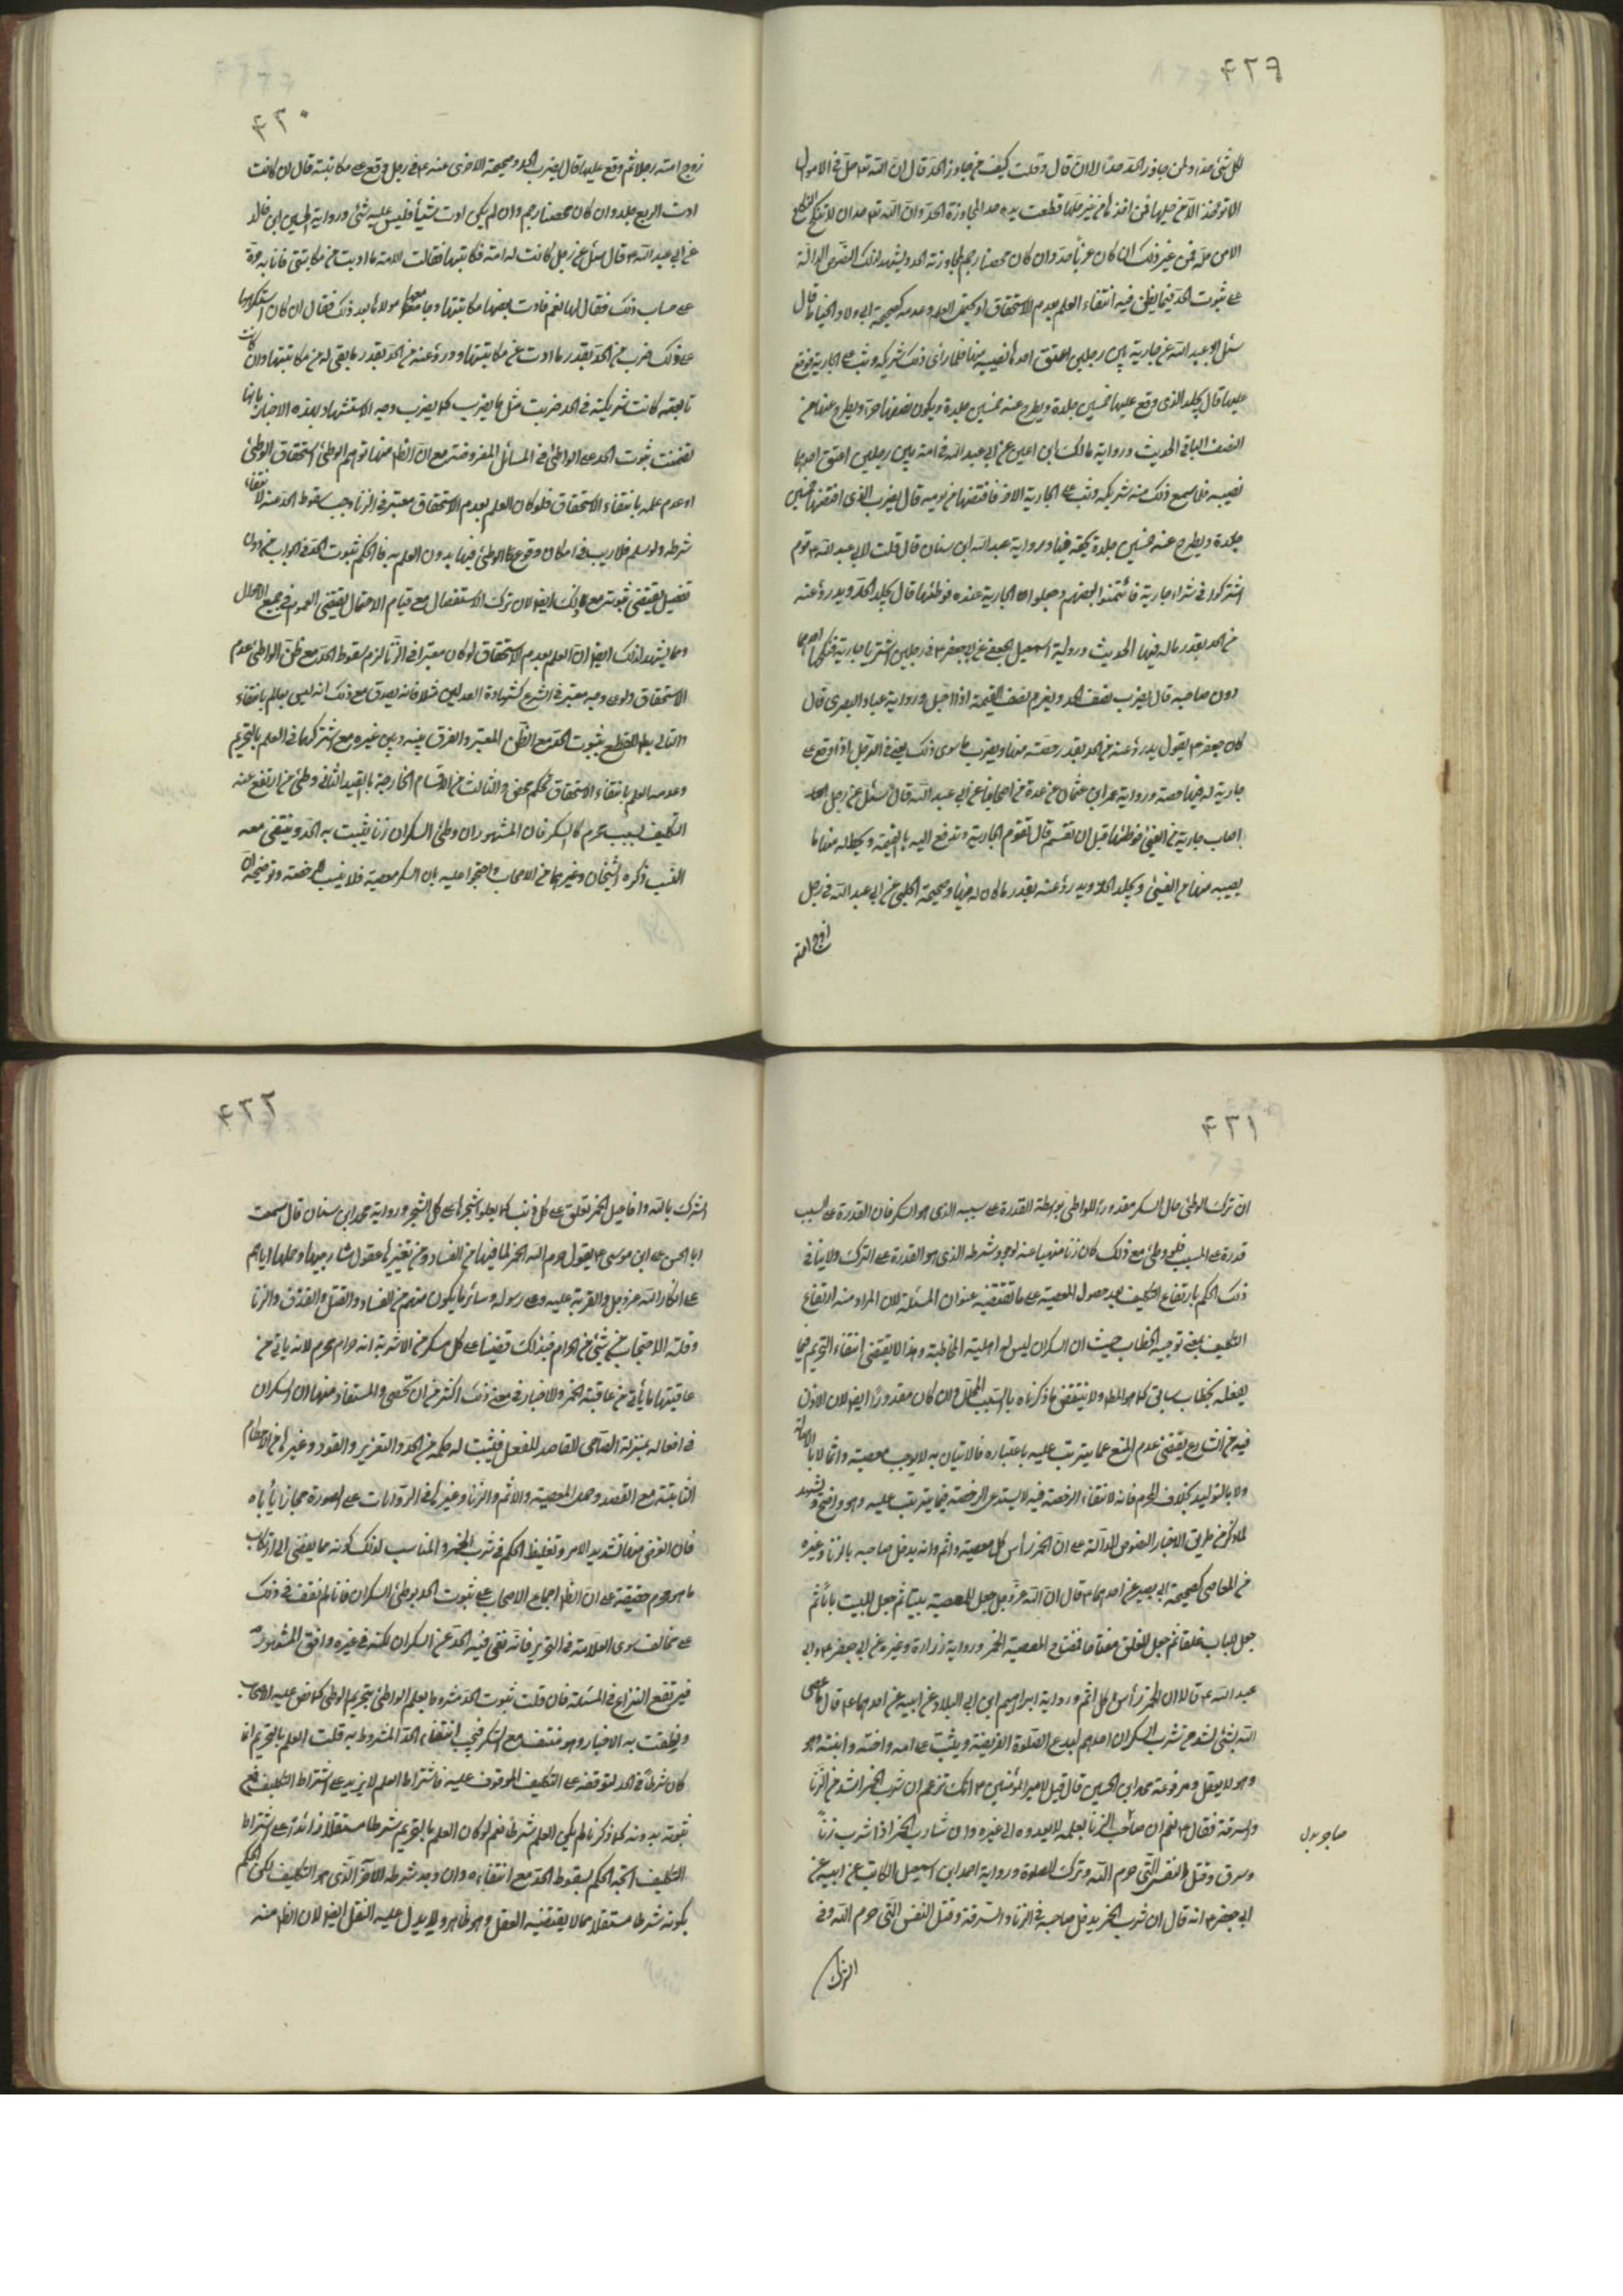 ۴۲۹
لكل شئ حدا ولمن جاوز الحد حدا الى ان قال وقلت كيف من جاوز الحد قال ان الله تع احل في الاموال
الا تؤخذ الا من حلها فمن اخذها من غير حلها قطعت يده حد المجاوزة الحد وان الله تع احد ان لا تنكح النكاح
الا من حله فمن غير ذلك ان كان عزبا حد وان كان محصنا رجم لمجاوزته الحد ويشهد لذلك النصوص الدالة
على ثبوت الحد فيما يظن فيه انتفاء العلم بعدم الاستحقاق او يحتمل العلم وعدمه كصحيحة ابي ولاد الحناط قال
سئل ابو عبد الله عن جارية بين رجلين اعتق احدهما نصيبه منها فلما راى ذلك شريكه وثب على الجارية فوقع
عليها قال يجلد الذي وقع عليها خمسين جلدة ويطرح عنه خمسين جلدة ويكون نصفها حرا ويطرح عنها من
النصف الباقي الحديث ورواية مالك ابن اعين عن ابي عبد الله في امة بين رجلين اعتق احدهما
نصيبه فلما سمع ذلك منه شريكه وثب على الجارية الاخر فافتضها من يومه قال يضرب الذي افتضها خمسين
جلدة ويطرح عنه خمسين جلدة بحقه فيها ورواية عبد الله ابن سنان قال قلت لابي عبد الله ع قوم
اشتركوا في شراء جارية فائتمنوا بعضهم وجعلوا الجارية عنده فوطئها قال يجلد الحد ويدرؤ عنه
من الحد بقدر ماله فيها الحديث ورواية اسمعيل الجعفي عن ابي جعفر ع في رجلين اشتريا جارية فنكحها احدهما
دون صاحبه قال يضرب نصف الحد ويغرم نصف القيمة اذا احبل ورواية عباد البصري قال
كان جعفر ع يقول يدرؤ عنه من الحد بقدر حصته منها ويضرب ما سوى ذلك يعني في الرجل اذا وقع على
جارية له فيها حصة ورواية عمر ابن عثمان عن عدة من اصحابنا عن ابي عبد الله قال سئل عن رجل
اصاب جارية من الفيئ فوطئها قبل ان تقسم قال تقوم الجارية وتدفع اليه بالقيمة ويحط له منها ما
يصيبه منها من الفيئ ويجلد الحد ويدرؤ عنه بقدر ما كان له فيها وصحيحة الحلبي عن ابي عبد الله في رجل
زوج امته
۴۳۰
زوج امته رجلا ثم وقع عليها قال يضرب الحد وصحيحة الاخرى عنه ع في رجل وقع على مكاتبته قال ان كانت
ادت الربع جلد وان كان محصنا رجم وان لم يكن ادت شيئا فليس عليه شئ ورواية الحسين ابن خالد
عن ابي عبد الله ع قال سئل عن رجل كانت له امة فكاتبها فقالت الامة ما اديت من مكاتبتي فانا به حرة
على حساب ذلك فقال لها نعم فادت بعض مكاتبتها وجامعها مولاها بعد ذلك فقال ان كان استكرهها
على ذلك ضرب من الحد بقدر ما ادت من مكاتبتها ودرؤ عنه من الحد بقدر ما بقي له من مكاتبتها وان كانت
تابعته كانت شريكته في الحد ضربت مثل ما يضرب كما يضرب وجه الاستشهاد بهذه الاخبار بانها
تضمنت ثبوت الحد على الواطئ في المسائل المفروضة مع ان الظ منها توهم الوطئ استحقاق الوطئ
او عدم علمه بانتفاء الاستحقاق فلو كان العلم بعدم الاستحقاق معتبر في الزنا وجب سقوط الحد عنه لانتفاء
شرطه ولو سلم فلا ريب في امكان وقوع الوطئ فيها بدون العلم به فالحكم بثبوت الحد في الجواب من دون
تفصيل يقتضي ثبوته مع ذلك ايضا لان ترك الاستفصال مع قيام الاحتمال يقتضي العموم في جميع الاحوال
ومما يشهد لذلك ايضا ان العلم بعدم الاستحقاق لو كان معتبرا في الزنا لزم سقوط الحد مع ظن الواطئ عدم
الاستحقاق ولو على وجه معتبر في الشرع كشهادة العدلين مثلا فانه يصدق مع ذلك انه ليس بعالم بانتفاء
والتالي بط للقطع بثبوت الحد مع الظن المعتبر والفرق بينه وبين غيره مع اشتراكهما في العلم بالتحريم
وعدم العلم بانتفاء الاستحقاق تحكم محض والثالث من الاقسام الخارجة بالقيد الثاني وطئ من ارتفع عنه
التكليف بسبب محرم كالسكر فان المشهور ان وطئ السكران زنا يثبت به الحد وينتفي معه
النسب ذكره الشيخان وغيرهما من الاصحاب واحتجوا عليه بان السكر معصية فلا يتسبب للرخصة وتوضيحه ان
۴۳۱
ان ترك الوطئ حال السكر مقدور للواطئ بواسطة القدرة على سببه الذي هو السكر فان القدرة على السبب
قدرة على المسبب فلو وطئ مع ذلك كان زنا منهيا عنه لوجود شرطه الذي هو القدرة على الترك ولا ينافي
ذلك الحكم بارتفاع التكليف بعد حصول المعصية على ما تقتضيه عنوان المسئلة لان المراد منه ارتفاع
التكليف بمعنى توجيه الخطاب حيث ان السكران ليس له اهلية المخاطبة وهذا لا يقتضي انتفاء التحريم فيما
يفعله بخطاب سابق كما هو المط ولا ينتقض ما ذكرناه بالسبب المحلل لان كان مقدورا ايضا لان الاذن
فيه من الشارع يقتضي عدم المنع عما يترتب عليه باعتباره فالاتيان به لا يوجب معصية واثما لا بالاصالة
ولا بالتوليد بخلاف المحرم فانه لانتفاء الرخصة فيه لا يستدعى الرخصة فيما يترتب عليه وهو واضح ويشهد
لما ذكر من طريق الاخبار النصوص الدالة على ان الخمر رأس كل معصية واثم وانه يدخل صاحبه بالزنا وغيره
من المعاصي كصحيحة ابي بصير عن احدهما ع قال ان الله عز وجل جعل للمعصية بيتا ثم جعل للبيت بابا ثم
جعل للباب غلقا ثم جعل للغلق مفتاحا فمفتاح المعصية الخمر ورواية زرارة وغيره عن ابي جعفر ع وابي
عبد الله ع قالا ان الخمر رأس كل اثم ورواية ابراهيم ابن ابي البلاد عن ابيه عن احدهما ع قال ما عصي
الله بشئ اشد من شرب السكران احدهم ليدع الصلوة الفريضة ويثب على امه واخته وابنته وهو
وهو لا يعقل ومرفوعة محمد ابن الحسين قال قيل لامير المؤمنين ع انك تزعم ان شرب الخمر اشد من الزنا
والسرقة فقال ع نعم ان صاحب الزنا لعله لا يعدوه الى غيره وان شارب الخمر اذا شرب زنا
وسرق وقتل النفس التي حرم الله وترك الصلوة ورواية احمد ابن اسمعيل الكاتب عن ابيه عن
ابي جعفر ع انه قال ان شرب الخمر يدخل صاحبه في الزنا والسرقة وقتل النفس التي حرم الله وفي
الشرك
۴۳۲
الشرك بالله وافاعيل الخمر تعلو على كل ذنب كما يعلو شجرها على كل الشجر ورواية محمد ابن سنان قال سمعت
ابا الحسن على ابن موسى ع يقول حرم الله الخمر لما فيها من الفساد ومن تغييرها عقول شاربيها وحملها اياهم
على انكار الله عز وجل والفرية عليه وعلى رسوله وسائر ما يكون منهم من الفساد والقتل والقذف والزنا
وقلة الاحتجاب من شئ من الحرام فبذلك قضينا على كل مسكر من الاشربة انه حرام محرم لانه ياتي من
عاقبتها ما يأتي من عاقبة الخمر والاخبار في معنى ذلك اكثر من ان تحصى والمستفاد منها ان السكران
في افعاله بمنزلة الصاحى القاصد للفعل فيثبت له حكمه من الحد والتعزير والقود وغيرها من الاحكام
الثابتة مع القصد وحمل المعصية والاثم والزنا وغيرها في الروايات على الصورة مجازا يأباه
فان الغرض منها تشديد الامر وتغليظ الحكم في شرب الخمر والمناسب لذلك كونه مما يفضي الى ارتكاب
ما هو محرم حقيقة على ان الظ اجماع الاصحاب على ثبوت الحد بوطئ السكران فانا لم نقف في ذلك
على مخالف سوى العلامة في التحرير فانه نفى فيه الحد عن السكران لكنه في غيره وافق المشهور
فيرتفع النزاع في المسئلة فان قلت ثبوت الحد مشروط بعلم الواطئ بتحريم الوطي كما نص عليه الاصحاب
ونطقت به الاخبار وهو منتف مع السكر فيجب انتفاء الحد المشروط به قلت العلم بالتحريم انما
كان شرطا في الحد لتوقفه على التكليف الموقوف عليه فاشتراط العلم لا يزيد على اشتراط التكليف فمع
ثبوته بدونه كما ذكرنا لم يكن العلم شرطا نعم لو كان العلم بالتحريم شرطا مستقلا زائدا على اشتراط
التكليف اتجه الحكم بسقوط الحد مع انتفاءه وان وجد شرطه الاخر الذي هو التكليف لكن الحكم
بكونه شرطا مستقلا مما لا يقتضيه العقل وهو ظاهر ولا يدل عليه النقل ايضا لان الظ منه